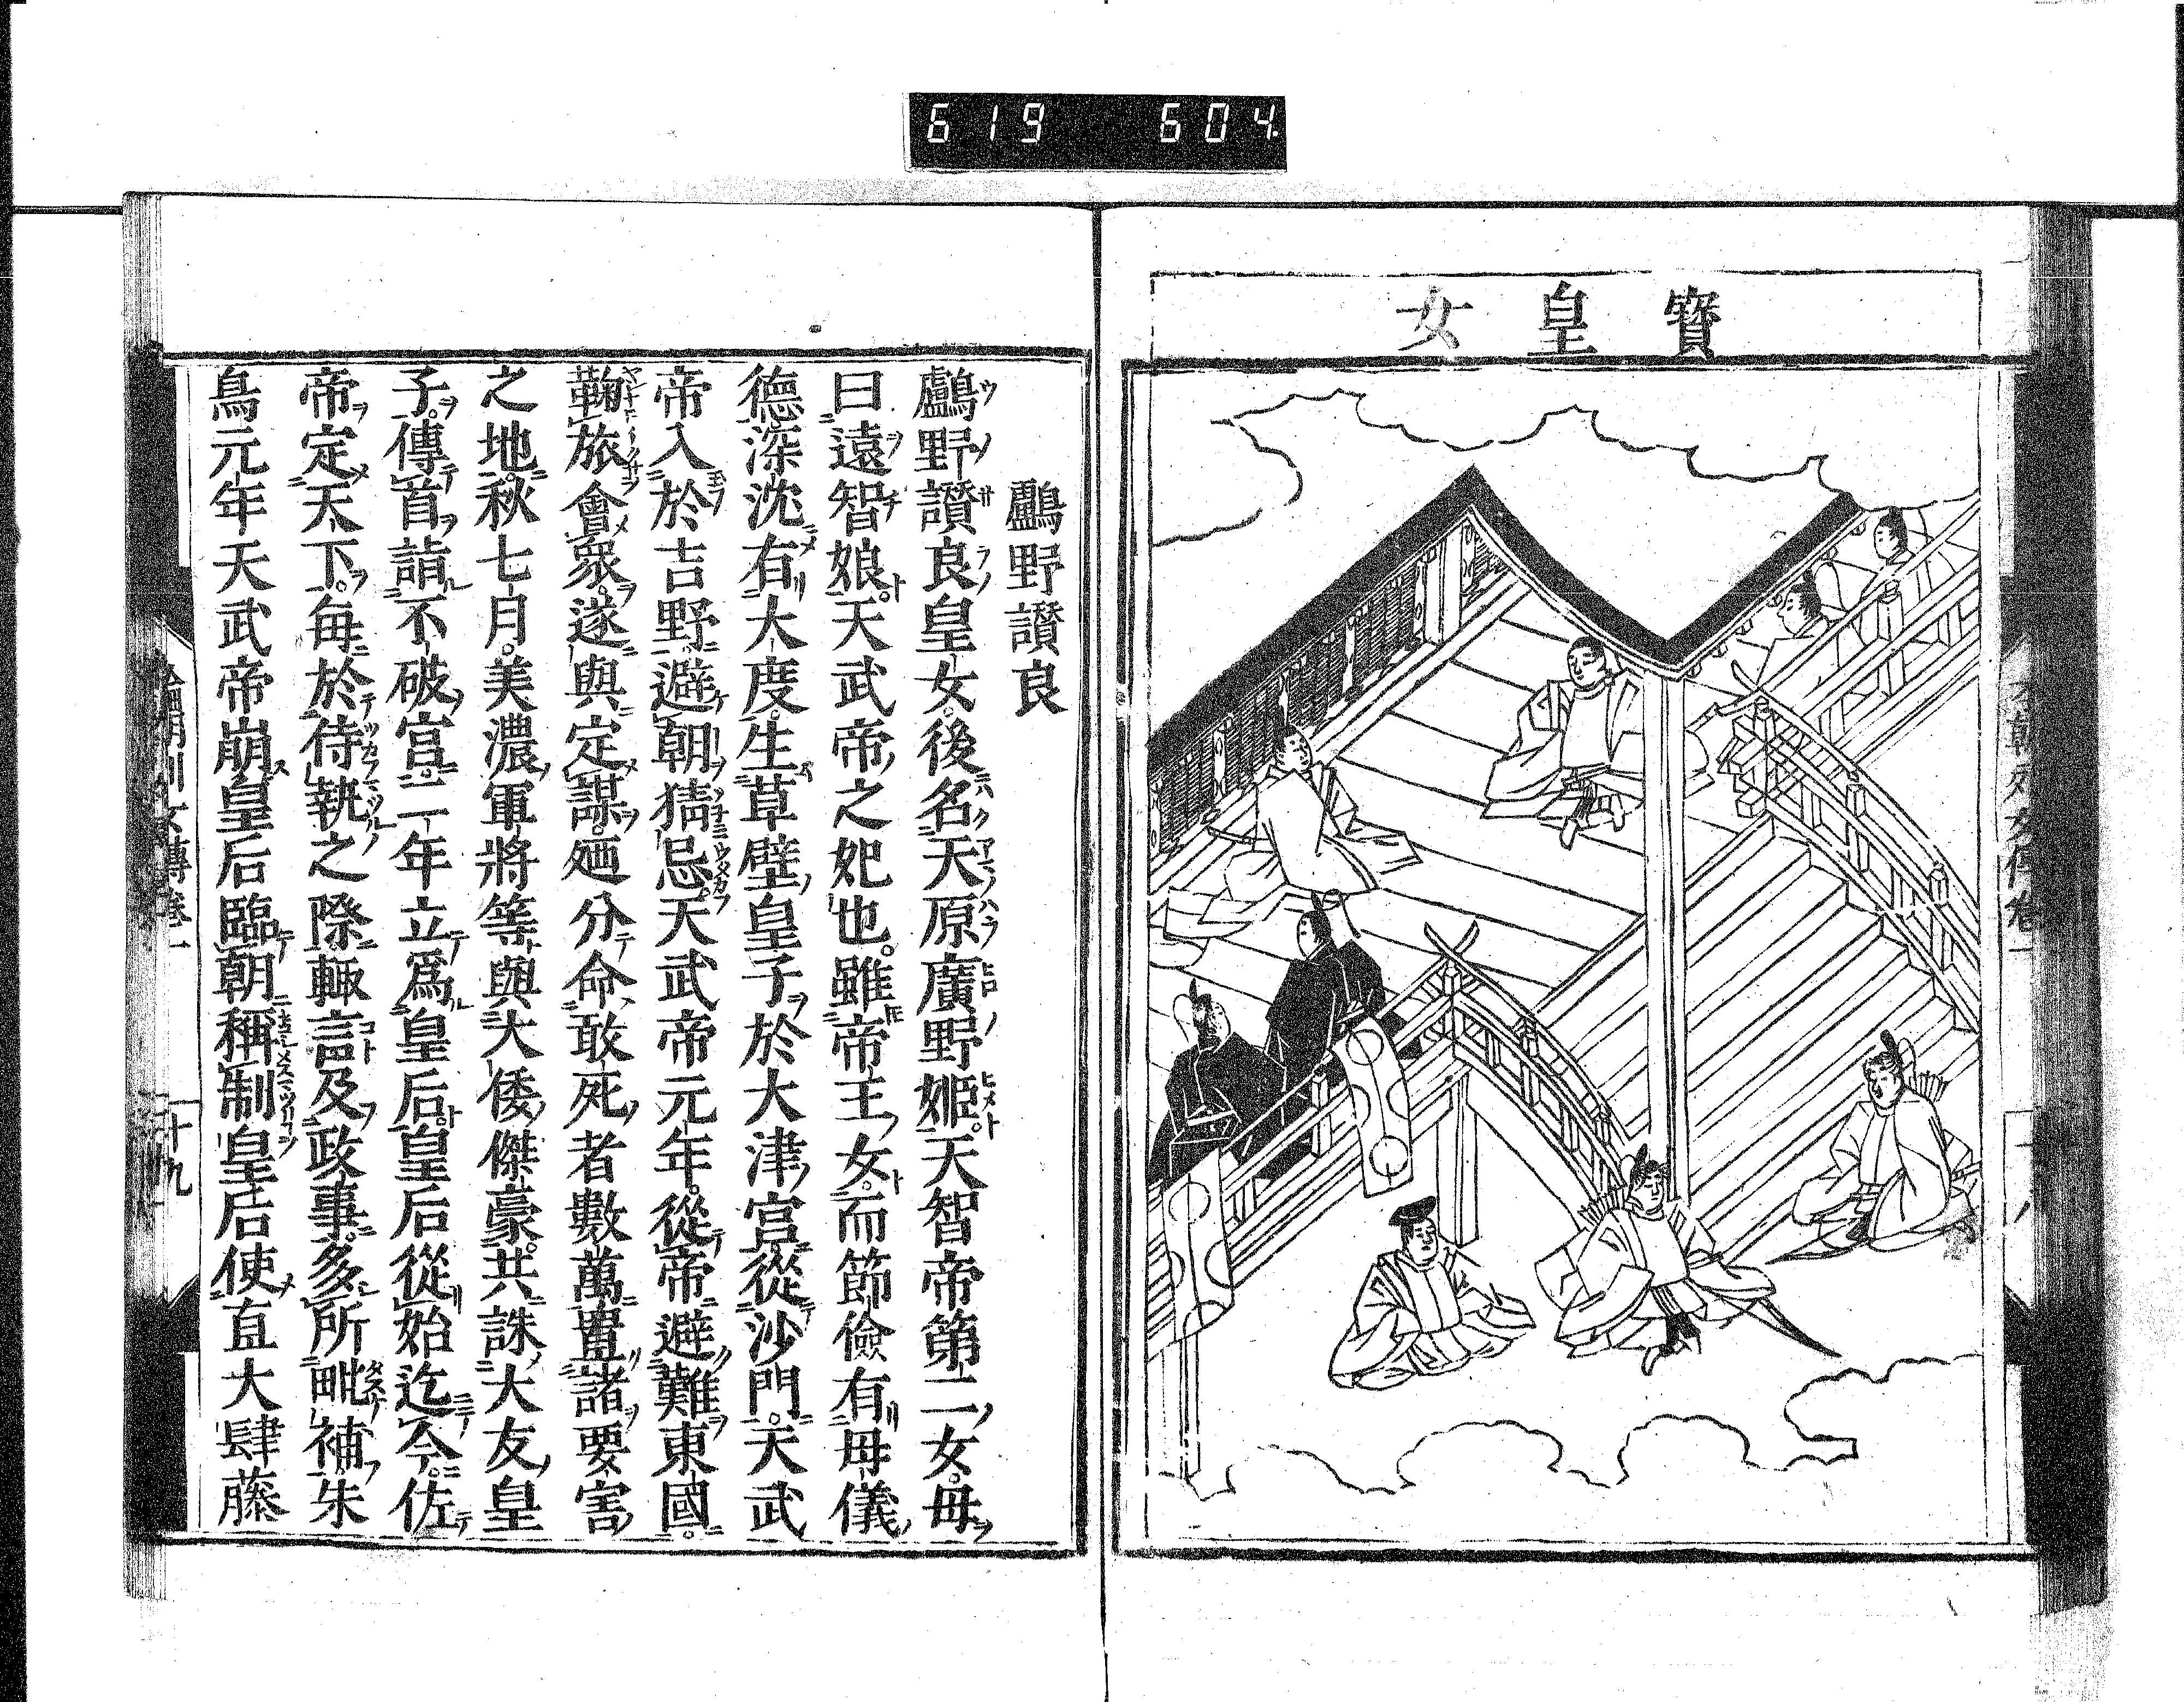 619 604
寶皇女
鸕野讚良
鸕野讚良皇女。後名天原廣野姬。天智帝第二女。母
曰遠智娘。天武帝之妃也。雖帝王女。而節儉有母儀
德深沈有大度。生草壁皇子於大津宮從沙門。天武
帝入於吉野避朝猜忌。天武帝元年。從帝避難東國。
鞠旅會衆。遂與定謀。廼分命敢死者數萬置諸要害
之地。秋七月。美濃軍將等與大倭傑豪。共誅大友皇
子。傳首詣不破宮。二年立爲皇后。皇后從始迄今。佐
帝定天下。每於侍執之際輙言及政事。多所毗補朱
鳥元年天武帝崩皇后臨朝稱制皇后使直大肆藤
十九